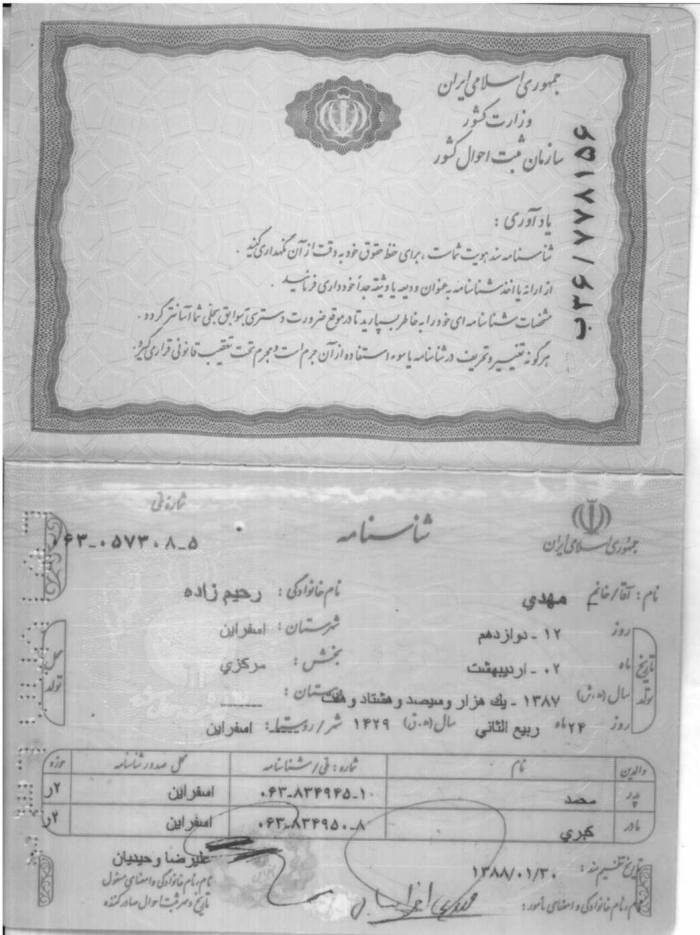 جمهوری اسلامی ایران
وزارت کشور
سازمان ثبت احوال کشور
ب۳۶/۷۷۸۱۵۶
یادآوری :
شناسنامه سند هویت شماست ، برای حفظ حقوق خود به دقت از آن نگهداری کنید .
از ارائه یا اخذ شناسنامه به عنوان ودیعه یا وثیقه جداً خودداری فرمائید .
مشخصات شناسنامه ای خود را به خاطر بسپارید تا در موقع ضرورت دسترسی بسوابق سجلی شما آسانتر گردد .
هرگونه تغییر و تحریف در شناسنامه یا سوء استفاده از آن جرم است و مجرم تحت تعقیب قانونی قرار می گیرد .
جمهوری اسلامی ایران
شناسنامه
شماره ملی
۰۶۳-۰۵۷۳۰۸-۵
نام : آقا/خانم مهدي نام خانوادگی : رحیم زاده
تاریخ تولد
روز ۱۲ - دوازدهم شهرستان : اسفراین
ماه ۰۲ - اردیبهشت بخش : مرکزي
سال (ه.ش) ۱۳۸۷ - یك هزار وسیصد و هشتاد و هفت دهستان :
روز ۲۴ ماه ربیع الثاني سال (ه.ق) ۱۴۲۹ شهر/روستا : اسفراین
محل تولد
والدین نام شماره : ملی/شناسنامه محل صدور شناسنامه حوزه
پدر محمد ۰۶۳-۸۳۴۹۴۵-۱ اسفراین ۲ر
مادر کبري ۰۶۳-۸۳۴۹۵۰-۸ اسفراین ۲ر
تاریخ تنظیم سند : ۱۳۸۸/۰۱/۳۰
علیرضا وحیدیان
نام ، نام خانوادگی و امضای مأمور :
نام ، نام خانوادگی و امضای مسئول
تاریخ و مهر ثبت احوال صادر کننده